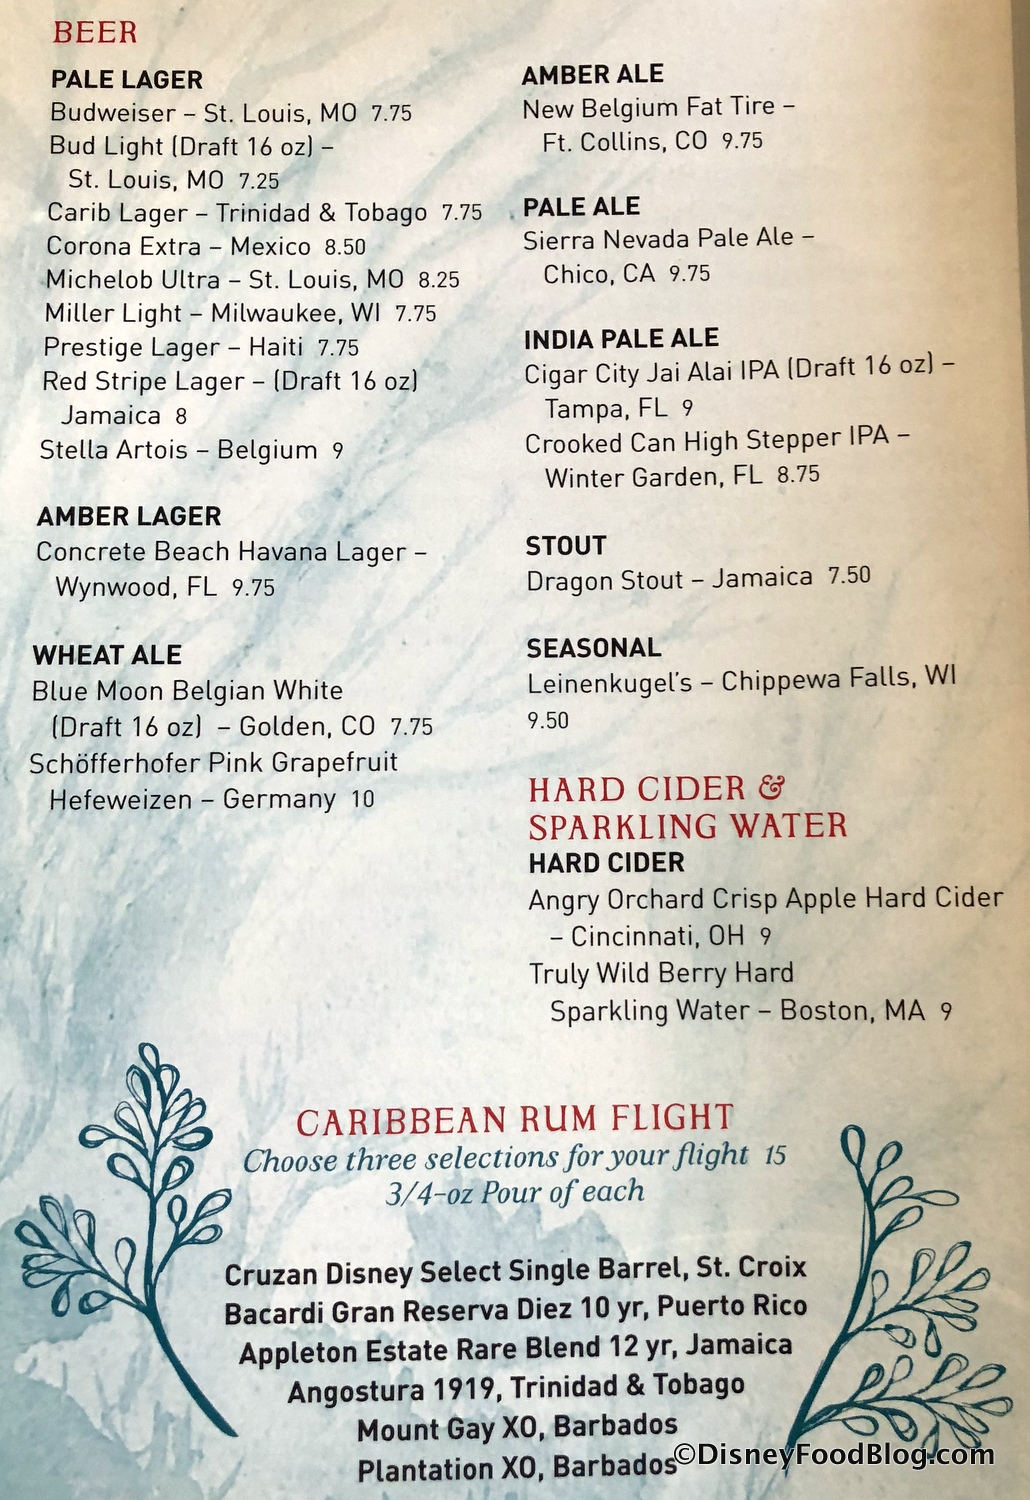 BEER
PALE LAGER
Budweiser – St. Louis, MO 7.75
Bud Light (Draft 16 oz) –
St. Louis, MO 7.25
Carib Lager – Trinidad & Tobago 7.75
Corona Extra – Mexico 8.50
Michelob Ultra – St. Louis, MO 8.25
Miller Light – Milwaukee, WI 7.75
Prestige Lager – Haiti 7.75
Red Stripe Lager – (Draft 16 oz)
Jamaica 8
Stella Artois – Belgium 9
AMBER LAGER
Concrete Beach Havana Lager –
Wynwood, FL 9.75
WHEAT ALE
Blue Moon Belgian White
(Draft 16 oz) – Golden, CO 7.75
Schöfferhofer Pink Grapefruit
Hefeweizen – Germany 10
AMBER ALE
New Belgium Fat Tire –
Ft. Collins, CO 9.75
PALE ALE
Sierra Nevada Pale Ale –
Chico, CA 9.75
INDIA PALE ALE
Cigar City Jai Alai IPA (Draft 16 oz) –
Tampa, FL 9
Crooked Can High Stepper IPA –
Winter Garden, FL 8.75
STOUT
Dragon Stout – Jamaica 7.50
SEASONAL
Leinenkugel's – Chippewa Falls, WI
9.50
HARD CIDER &
SPARKLING WATER
HARD CIDER
Angry Orchard Crisp Apple Hard Cider
– Cincinnati, OH 9
Truly Wild Berry Hard
Sparkling Water – Boston, MA 9
CARIBBEAN RUM FLIGHT
Choose three selections for your flight 15
3/4-oz Pour of each
Cruzan Disney Select Single Barrel, St. Croix
Bacardi Gran Reserva Diez 10 yr, Puerto Rico
Appleton Estate Rare Blend 12 yr, Jamaica
Angostura 1919, Trinidad & Tobago
Mount Gay XO, Barbados
Plantation XO, Barbados
©DisneyFoodBlog.com